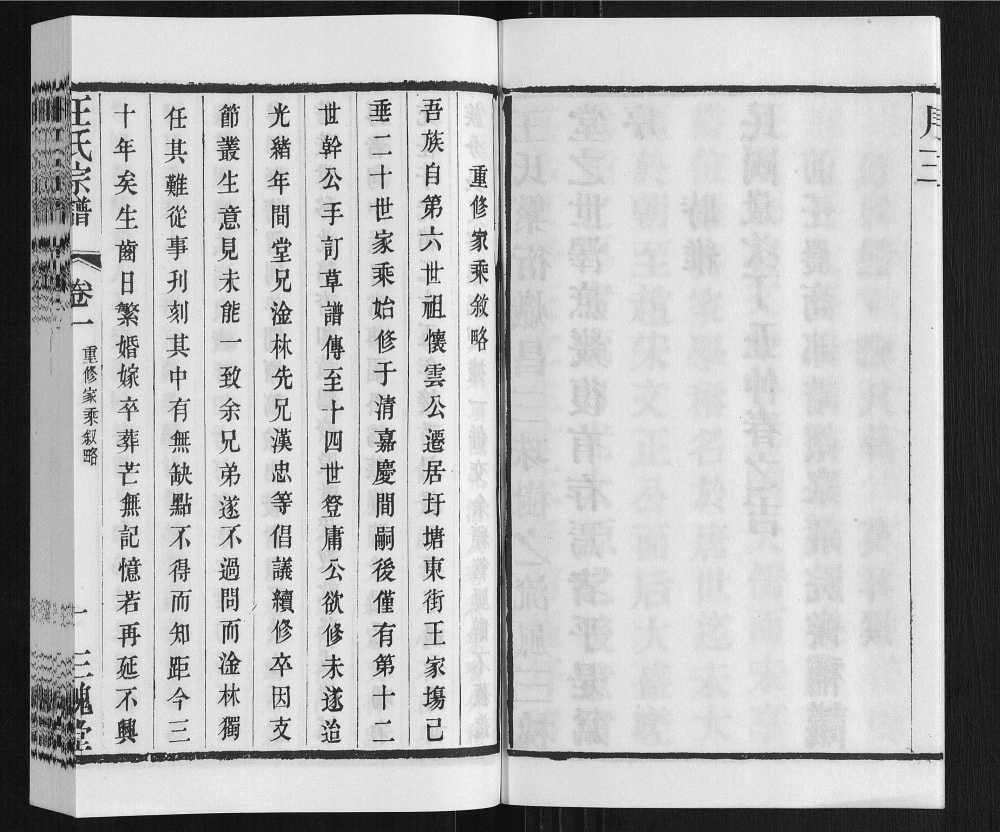 重修家乘敘略
吾族自第六世祖懷雲公遷居圩塘東街王家塲已
垂二十世家乘始修于清嘉慶間嗣後僅有第十二
世幹公手訂草譜傳至十四世登庸公欲修未遂迨
光緒年間堂兄淦林先兄漢忠等倡議續修卒因支
節叢生意見未能一致余兄弟遂不過問而淦林獨
任其難從事刊刻其中有無缺點不得而知距今三
十年矣生齒日繁婚嫁卒葬芒無記憶若再延不興
王氏宗譜
卷一
重修家乘叙略
一
三槐堂